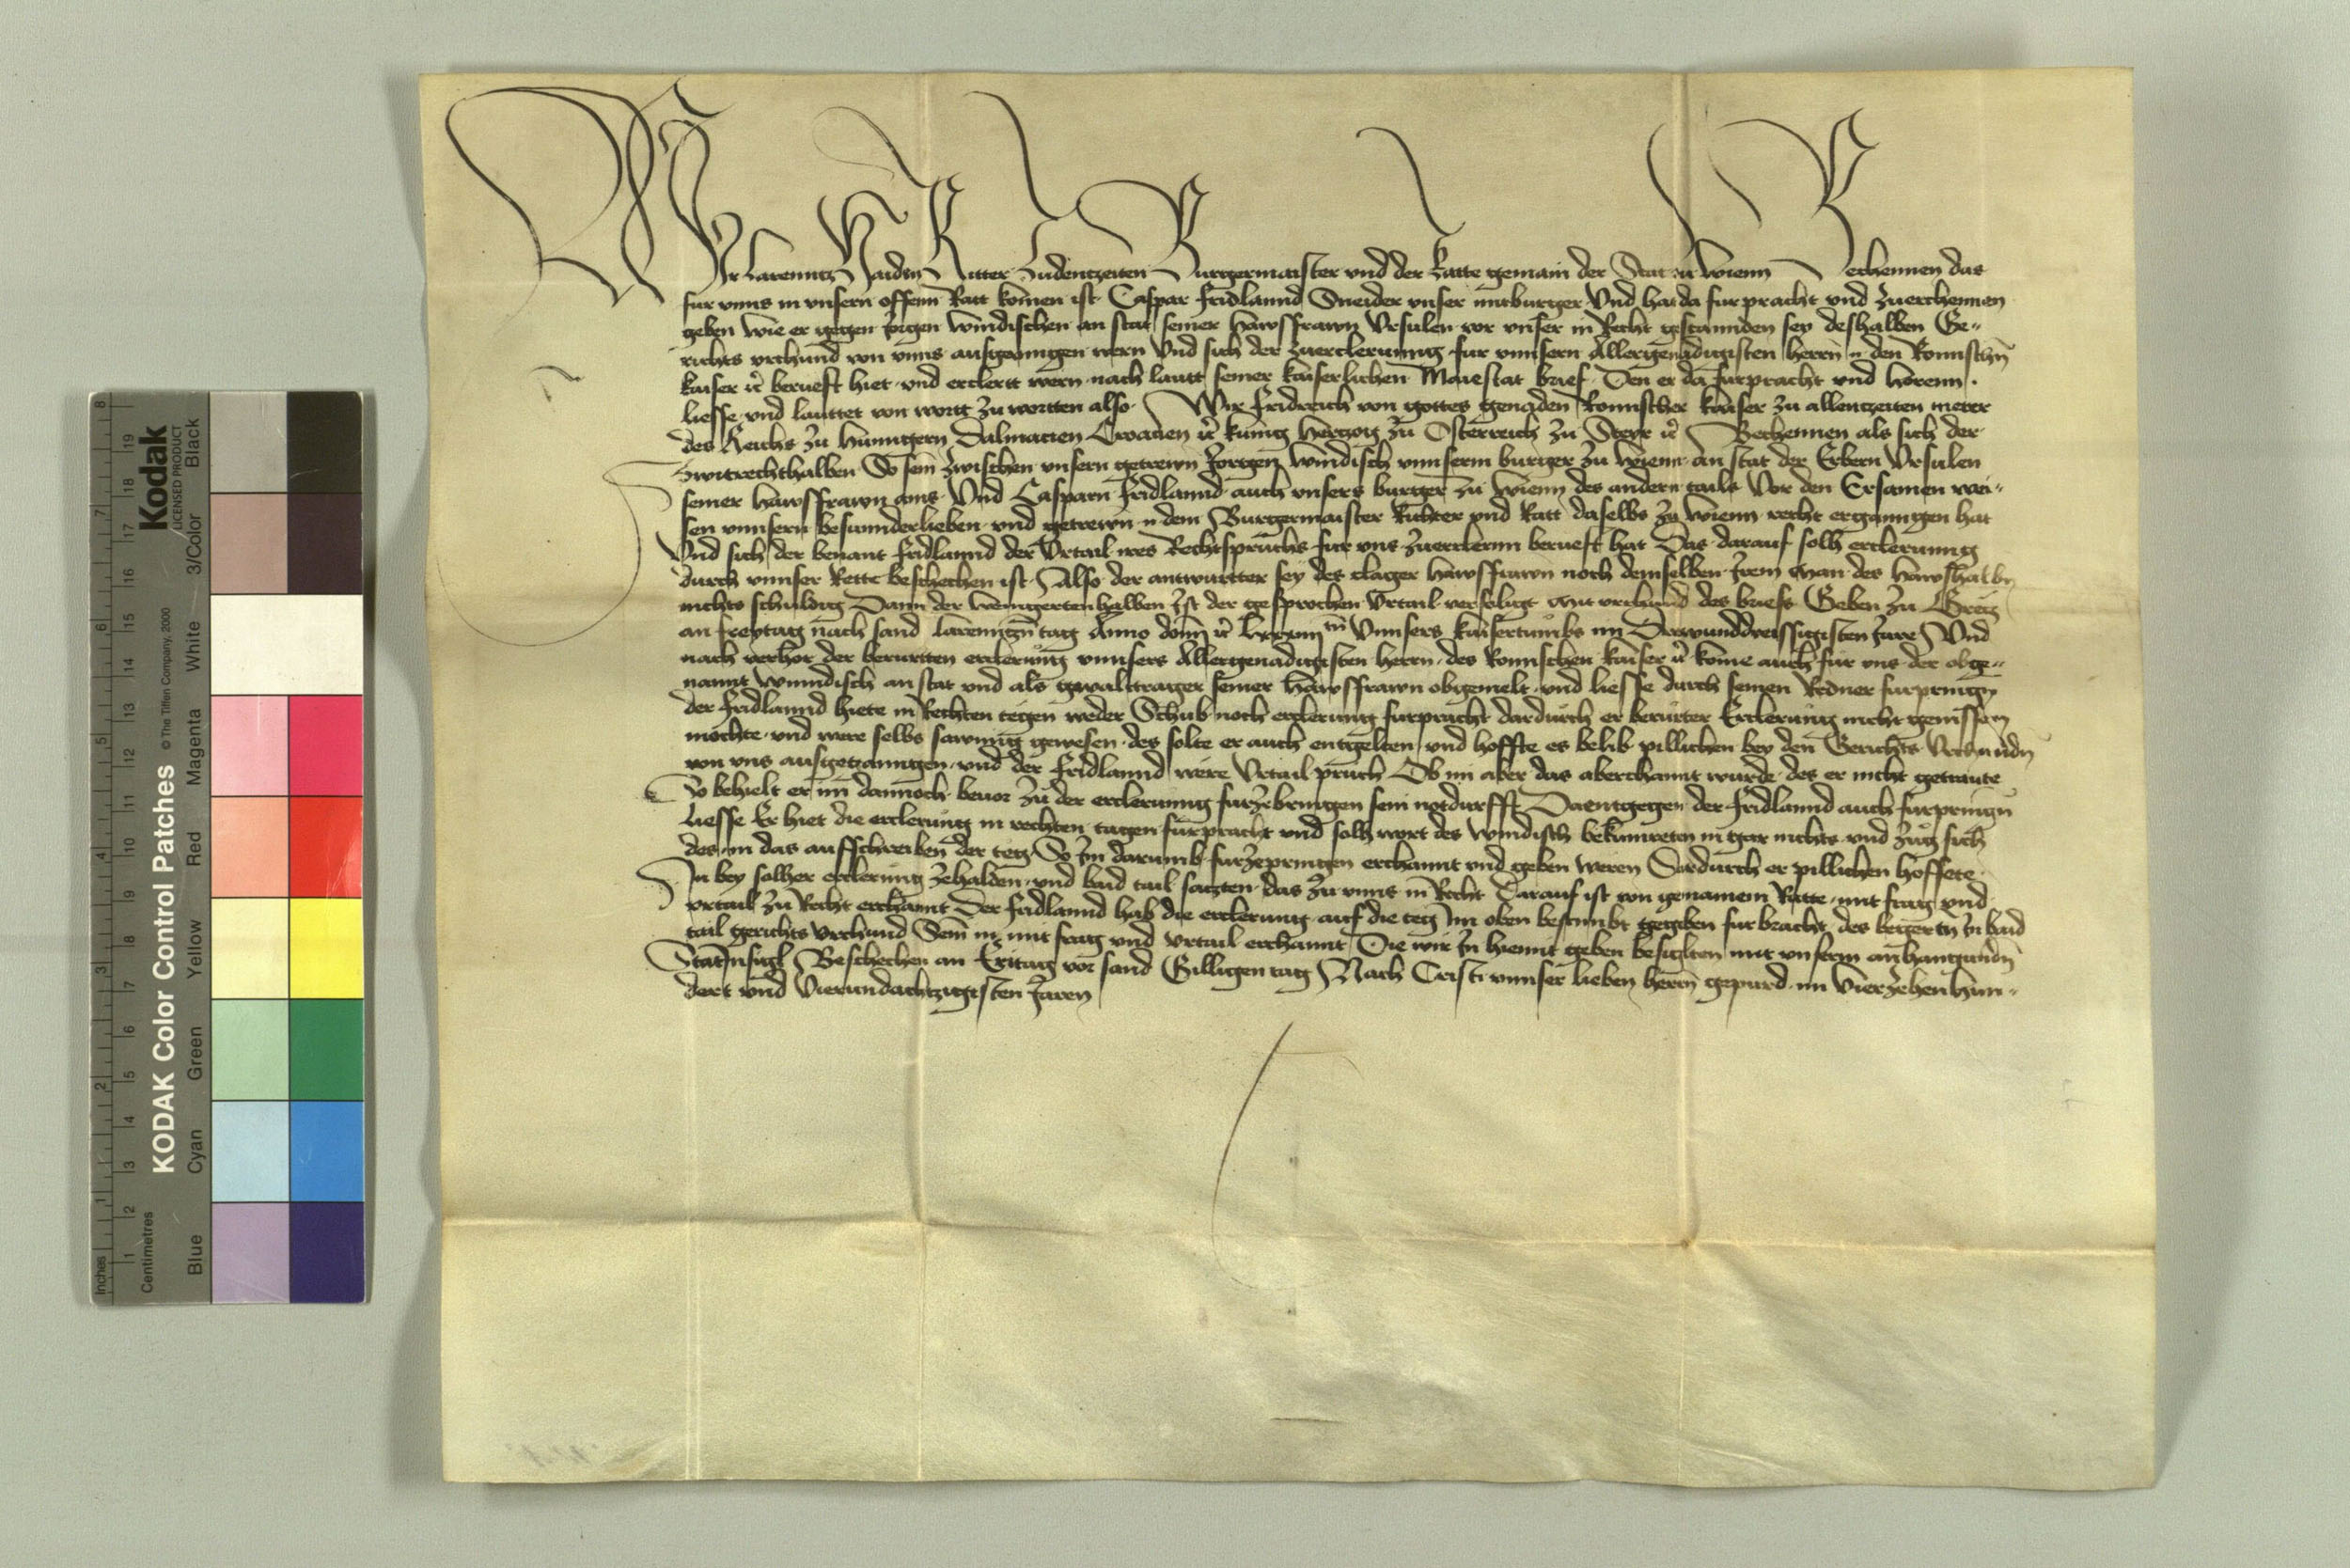 Wir Larenntz Haiden Ritter Zudentzeiten Burgermaister vnd der Ratte gemain der Stat zu Wienn Bechennen das
fur vnns in vnsern offenn Ratt komen ist Caspar Fridlannd Sneider vnser mitburger Vnd hat da furpracht vnd zuerchennen
geben wie er gegen Jorgen Windischen an stat seiner Hawsfrawn Vrsulen vor vnser in Recht gestannden sey deshalben Ge-
richts vrchund von vnns ausgeganngen wern Vnd sich der zuerclerunng fur vnnsern Allergenadigisten herrn n den Romischn
kaiser ꝛc berueft hiet vnd erclertt wern nach lautt seiner kaiserlichen Maiestat brief Den er da furpracht vnd horenn
liesse vnd lauttet von wortt zu wortten also Wir Fridreich von gottes genaden Romischer kaiser zu allentzeiten merer
des Reichs zu Hunngern Dalmacien Croacien ꝛc kunig Hertzog zu Osterreich zu Steyr ꝛc Bechennen als sich der
Zwitrechthalben So sein zwischen vnsern getrewn Jorgen Windisch vnnserm burger zu Wienn an stat der Erbern Vrsulen
seiner Hawsfrawn ains Vnd Casparn Fridlannd auch vnsers burger zu Wienn des andern tails Vor den Ersamen wei-
sen vnnsern besunnderlieben vnd getrewn n dem Burgermaister Richter vnd Ratt daselbs zu Wienn recht erganngen hat
Vnd sich der benant Fridlannd der Vrtail ires Rechtspruchs fur vns zuerclernn berueft hat Das darauf solh erclerunng
durch vnnser Rette beschechen ist Also der antwurtter sey des clager Hawsfrawn noch demselben Irem man des Hawshalbn
nichts schuldig Dann der Weingerten halben Ist der gesprochen Vrtail verfoligt Mit vrchund des briefs Geben zu Gretz
an Freytag nach sand Larenntzn tag Anno domini ꝛc Vnnsers kaisertumbs im Drewunddreissigisten Jare Vnd
nach verhor der berurtten erclerung vnnsers Allergenadigisten herrn des Romischen kaiser ꝛc kome auch fur vns der obge-
nannt Wunndisch an stat vnd als gewalttrager seiner Hawsfrawn obgemelt vnd liesse durch seinen Redner furpringn
der Fridlannd hiete in Rechten tegen weder Schub noch erclerung furpracht dardurch er berurter Erclerung nicht geniessen
mochte vnd were selbs sawmig gewesen des solte er auch entgelten vnd hoffte es belib pillichen bey den Gerichts Vrchundn
von vns ausgeganngen vnd der Fridlannd were Vrtail pruch Ob im aber das aberchannt wurde des er nicht getraute
So behielt er im dannoch beuor zu der erclerunng furzebringen sein notdurfft Daentgegen der Fridlannd auch furpringn
liesse Er hiet die erclerung in rechten tagen furpracht vnd solh wort des Windisch bekumerten in gar nichts vnd zug sich
des in das aufschreiben der teg So Im darumb furzepringen erchannt vnd geben weren Dardurch er pillichen hoffete
In bey solher erclerung zehalden vnd baid tail satzten das zu vnns in Recht Darauf ist von genamem Ratte mit frag vnd
vrtail zu Recht erchannt Der Fridlannd hab die erclerung auf die teg Im oben bestimbt gegeben furbracht des begertn In baid
tail gerichts Vrchund Sein in mit frag vnd Vrtail erchannt Die wir In hiemit geben besigltn mit vnserm anhangundn
StatInsigl Beschechen an Eritag vor sand Gilligen tag Nach Cristi vnnser lieben herrn gepurd im Vierzehenhun-
dert vnd Vierundachtzigisten Jaren
KODAK Color Control Patches
Kodak
LICENSED PRODUCT
© The Tiffen Company, 2000
Inches
Centimetres
Blue Cyan Green Yellow Red Magenta White 3/Color Black